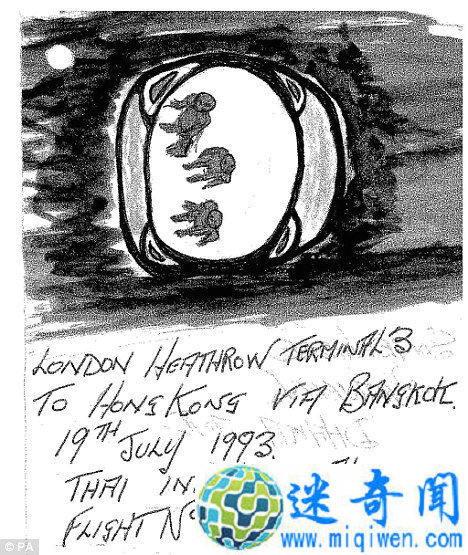 LONDON HEATHROW TERMINAL 3
TO HONG KONG VIA BANGKOK.
19TH JULY 1993.
THAI IN
FLIGHT NO
迷奇闻
www.miqiwen.com
© PA